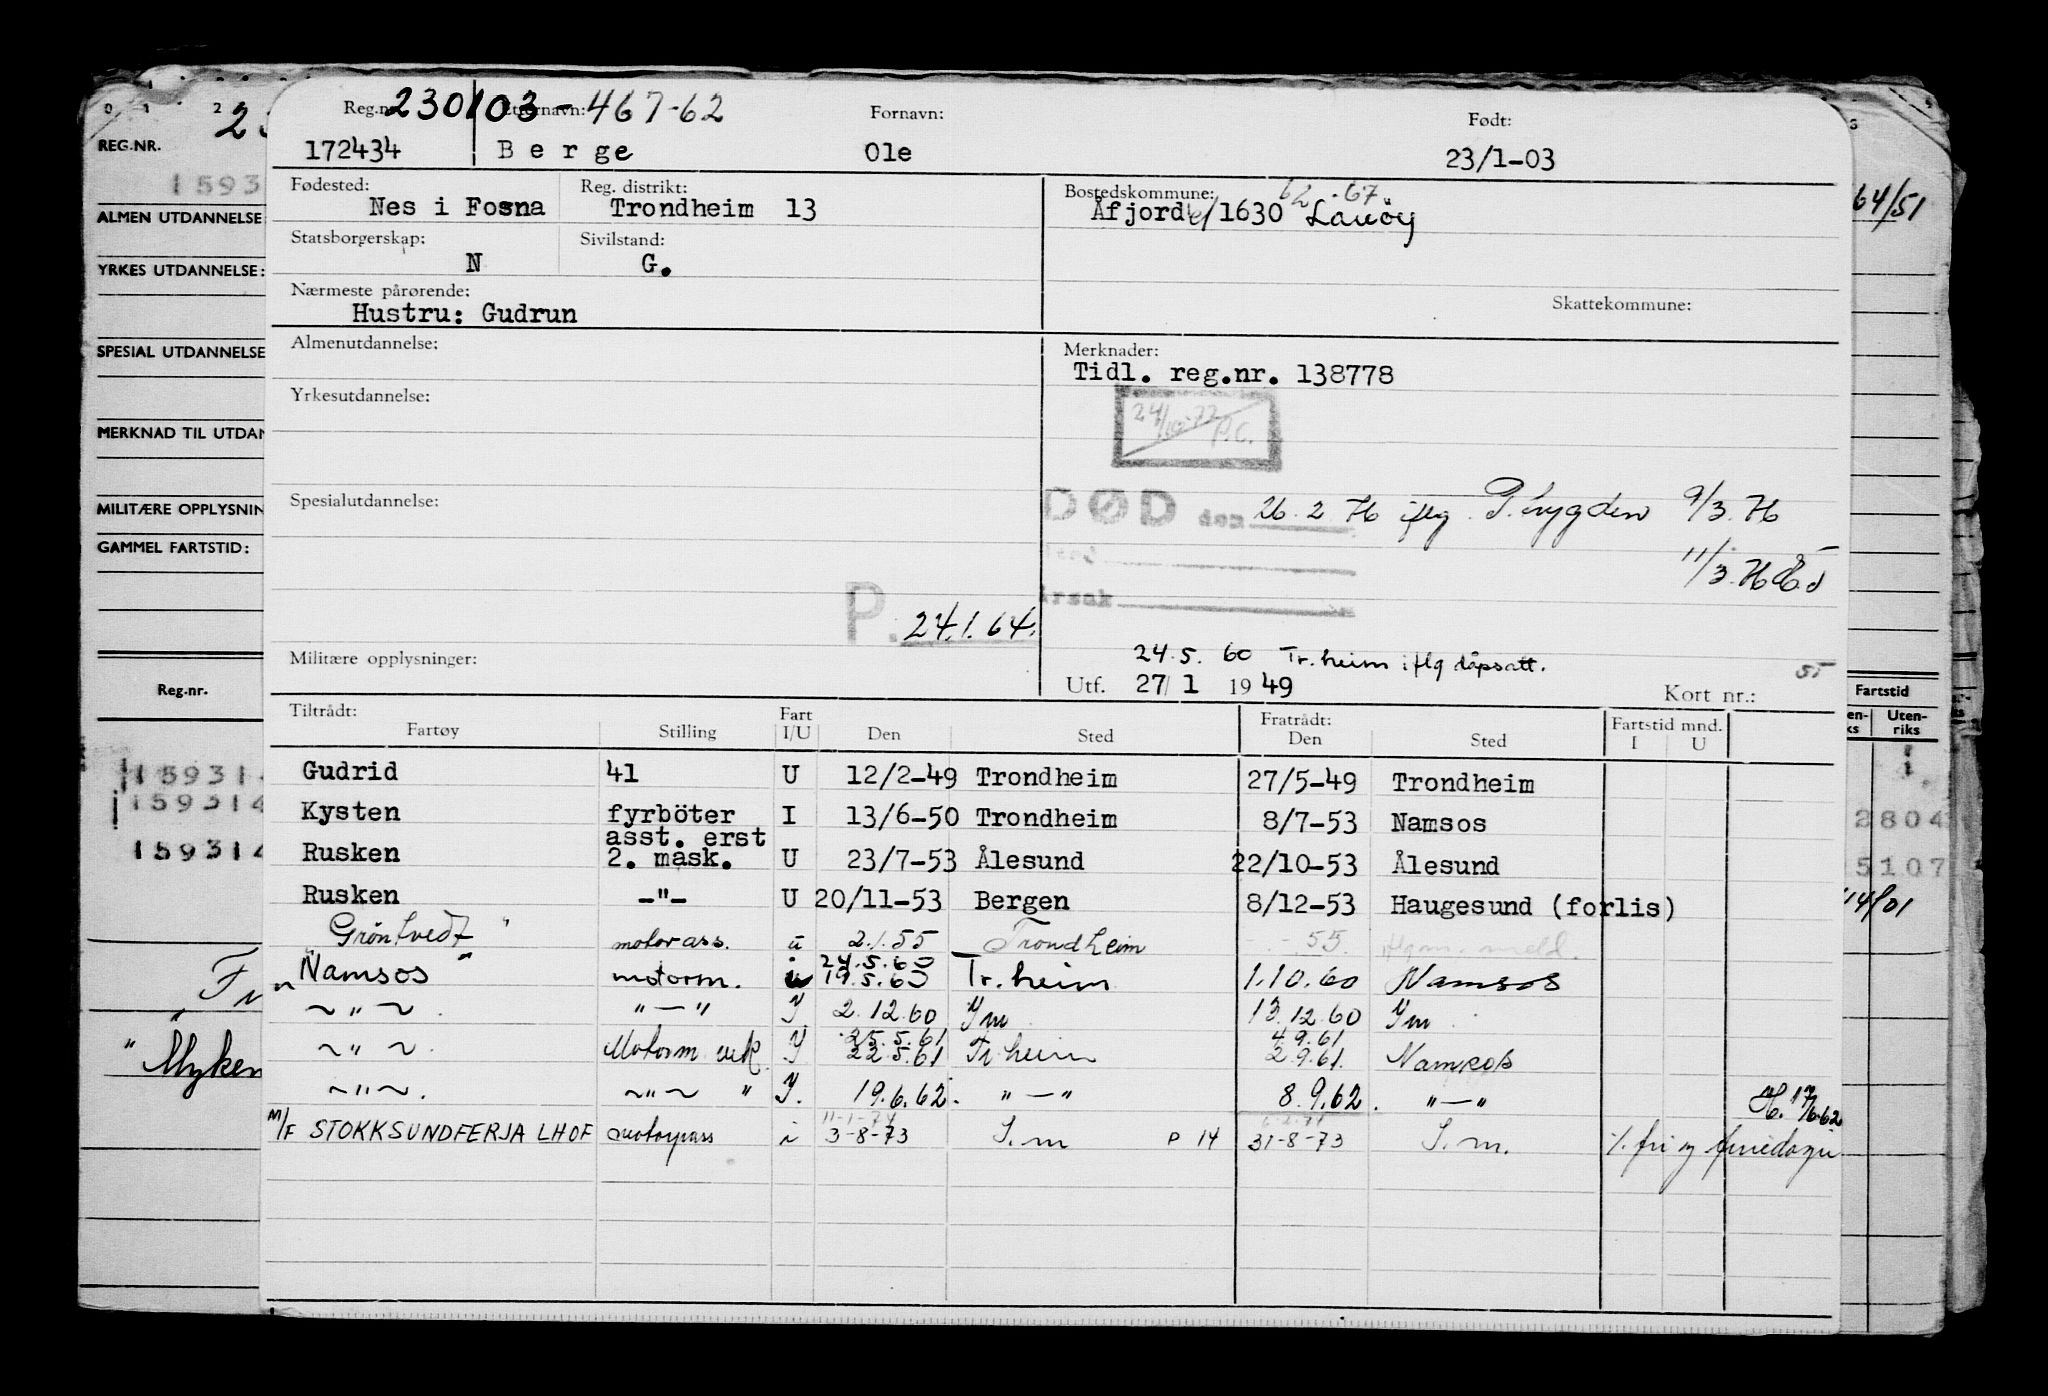 Reg.nr. 230103-467-62 Etternavn: Fornavn: Født:
172434 Berge Ole 23/1-03
Fødested: Reg. distrikt: Bostedskommune: 62-67
Nes i Fosna Trondheim 13 Åfjord 1630
Statsborgerskap: Sivilstand:
N G.
Nærmeste pårørende: Skattekommune:
Hustru: Gudrun
Almenutdannelse: Merknader:
Tidl. reg.nr. 138778
Yrkesutdannelse:
24/10-77 P.C.
Spesialutdannelse:
DØD den 26.2.76 iflg. P. trygden 9/3.76
11/3.76
Årsak
P. 24.1.64.
Militære opplysninger: 24.5.60 Tr.heim iflg
Utf. 27/1 1949 Kort nr.: 55
Tiltrådt: Fart Fratrådt: Fartstid mnd.
Fartøy Stilling I/U Den Sted Den Sted I U
Gudrid 41 U 12/2-49 Trondheim 27/5-49 Trondheim
Kysten fyrböter I 13/6-50 Trondheim 8/7-53 Namsos
asst. erst
Rusken 2. mask. U 23/7-53 Ålesund 22/10-53 Ålesund
Rusken -"- U 20/11-53 Bergen 8/12-53 Haugesund (forlis)
Gröntvedt " motorass. u 2.1.55 Trondheim 55.
24.5.60
"Namsos" motorm. i 19.5.60 Tr.heim 1.10.60 Namsos
~"~ "—" I 2.12.60 Im 13.12.60 Im
25.5.61 4.9.61
~"~ Motorm. vik. I 22.5.61 Tr.heim 2.9.61. Namsos
~"~. ~"~ " I. 19.6.62. "—" 8.9.62. "—" 17/6-62
11-1-74
M/F STOKKSUNDFERJA LHOF motorpass i 3-8-73 S.m P 14 31-8-73 S.m. %. fri og feriedager
REG.NR.
1593
ALMEN UTDANNELSE
YRKES UTDANNELSE:
SPESIAL UTDANNELSE
MERKNAD TIL UTDAN
MILITÆRE OPPLYSNIN
GAMMEL FARTSTID:
Reg.nr.
159314
159314
159314
"Myken
64/51
Fartstid
Uten-
riks
2804
5107